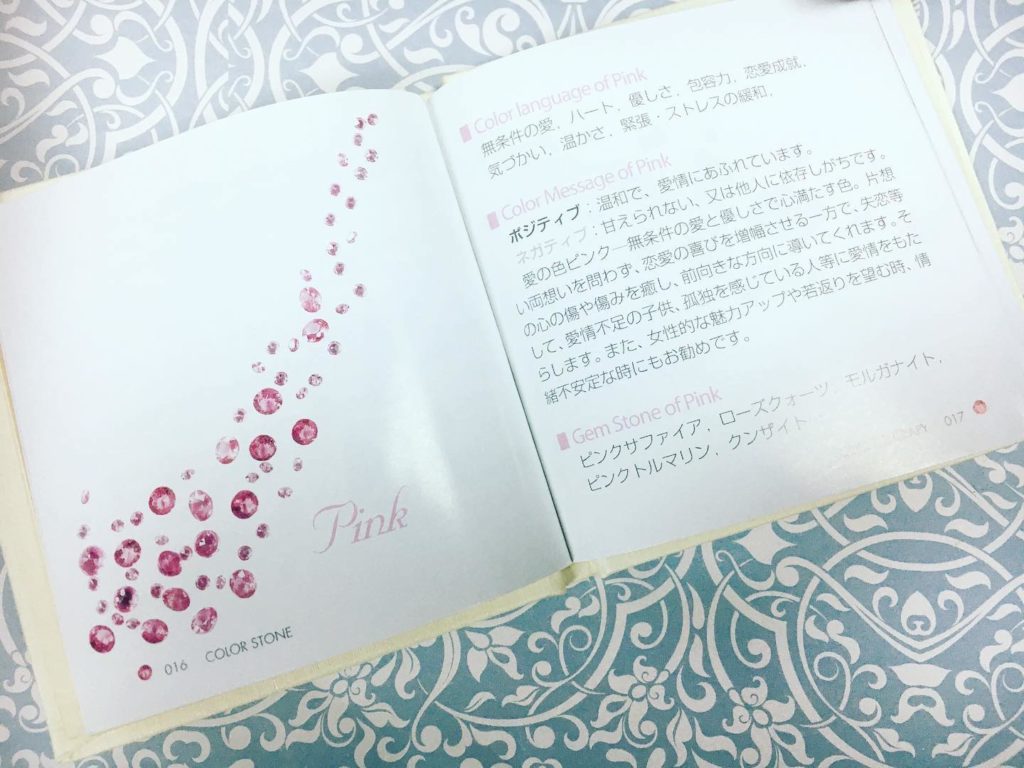 Pink
016 COLOR STONE
Color language of Pink
無条件の愛, ハート, 優しさ, 包容力, 恋愛成就,
気づかい, 温かさ, 緊張・ストレスの緩和,
Color Message of Pink
ポジティブ:温和で、愛情にあふれています。
ネガティブ:甘えられない、又は他人に依存しがちです。
愛の色ピンク―無条件の愛と優しさで心満たす色。片想
い両想いを問わず、恋愛の喜びを増幅させる一方で、失恋等
の心の傷や傷みを癒し、前向きな方向に導いてくれます。そ
して、愛情不足の子供、孤独を感じている人等に愛情をもた
らします。また、女性的な魅力アップや若返りを望む時、情
緒不安定な時にもお勧めです。
Gem Stone of Pink
ピンクサファイア, ローズクォーツ, モルガナイト,
ピンクトルマリン, クンザイト
017